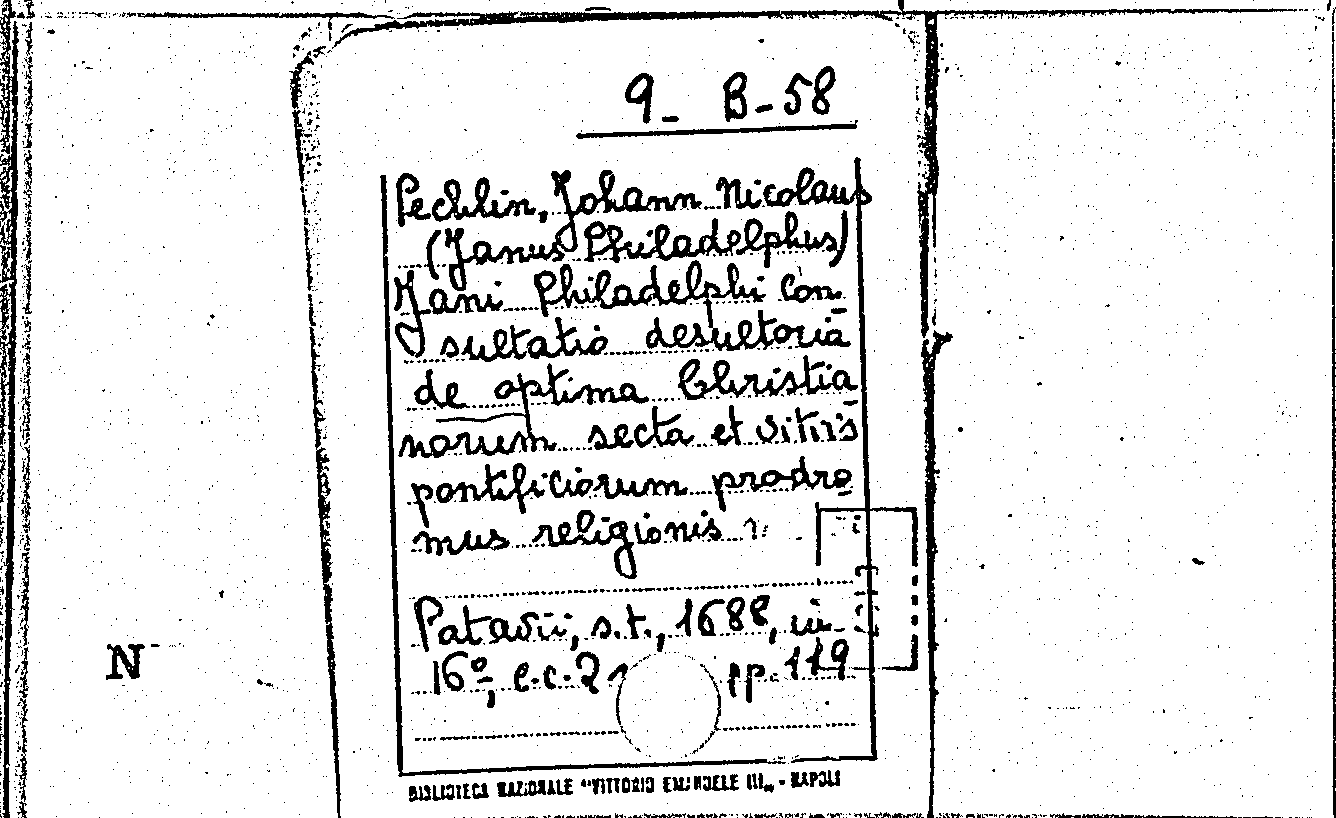 9- B-58
Pechlin, Johann Nicolaus
(Janus Philadelphus)
Jani Philadelphi Con
sultatio desultoria
de optima Christia
norum secta et vitiis
pontificiorum prodro
mus religionis
Patavii, s.t., 1688, in-
16º, c.c. 2 pp. 119
N
BIBLIOTECA NAZIONALE "VITTORIO EMANUELE III" - NAPOLI